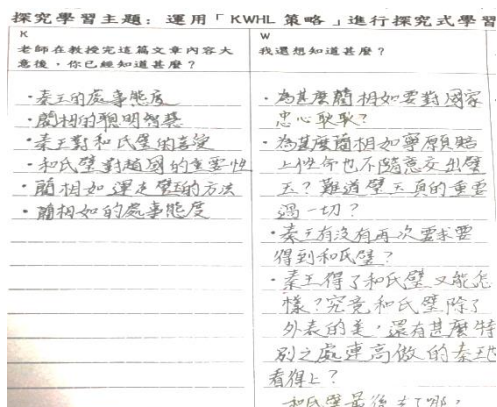 探究學習主題：運用「KWHL 策略」進行探究式學習
K
老師在教授完這篇文章內容大
意後，你已經知道甚麼？
・秦王的處事態度
・藺相的聰明智慧
・秦王對和氏璧的喜愛
・和氏璧對趙國的重要性
・藺相如運走璧的方法
・藺相如的處事態度
W
我還想知道甚麼？
・為甚麼藺相如要對國家
忠心耿耿？
・為甚麼藺相如寧願賠
上性命也不隨意交出璧
玉？難道璧玉真的重要
過一切？
・秦王有沒有再次要求要
得到和氏璧？
・秦王得了和氏璧又能怎
樣？究竟和氏璧除了
外表的美，還有甚麼特
別之處連高傲的秦王也
看得上？
和氏璧最後去了哪，